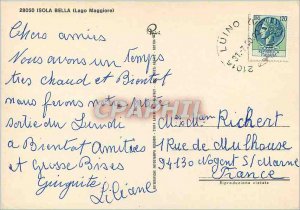 28050 ISOLA BELLA (Lago Maggiore)
Chers amis
Nous avons un temps
très chaud et Bientôt
nous ferons notre
sortie du Lundi
à Bientôt Amitiés
et Grosse Bises
Liliane
LUINO
21016
120
Richert
1 Rue de Mulhouse
94130 Nogent S/Marne
France
Riproduzione vietata